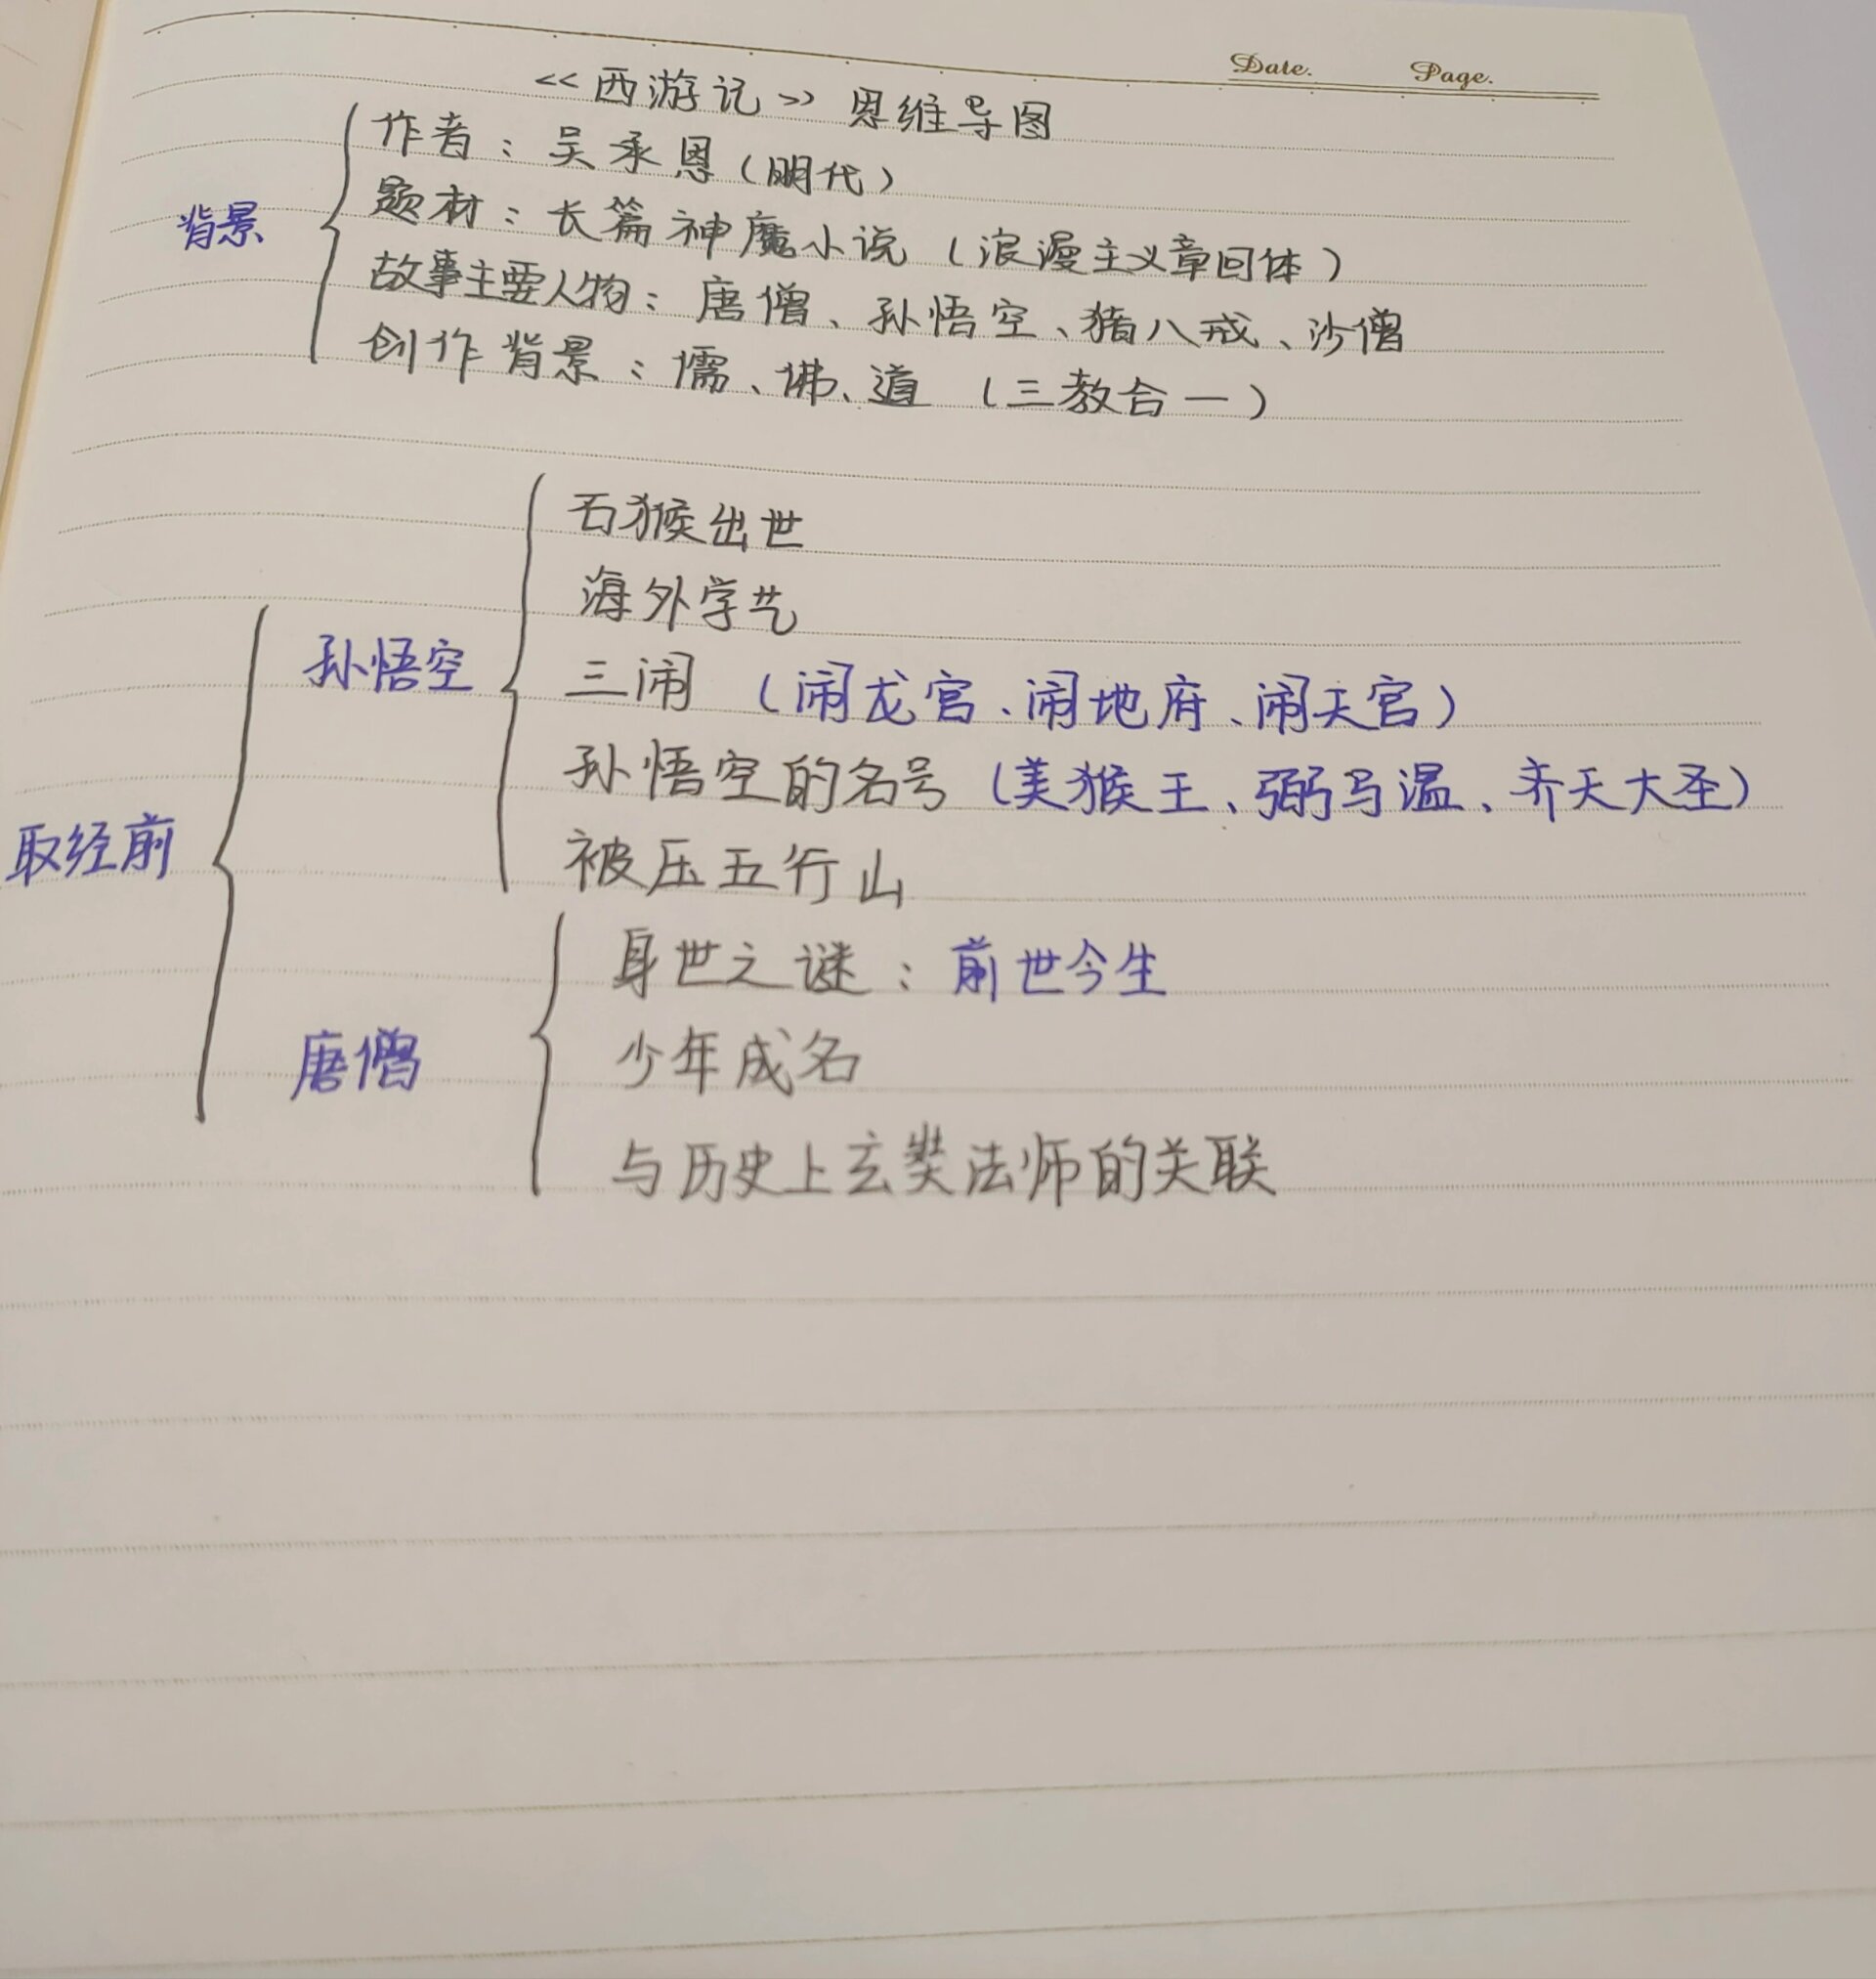 Date. Page.
<<西游记>> 思维导图
作者：吴承恩（明代）
题材：长篇神魔小说（浪漫主义章回体）
背景
故事主要人物：唐僧、孙悟空、猪八戒、沙僧
创作背景：儒、佛、道（三教合一）
石猴出世
海外学艺
孙悟空
三闹（闹龙宫、闹地府、闹天宫）
孙悟空的名号（美猴王、弼马温、齐天大圣）
取经前
被压五行山
身世之谜：前世今生
唐僧
少年成名
与历史上玄奘法师的关联